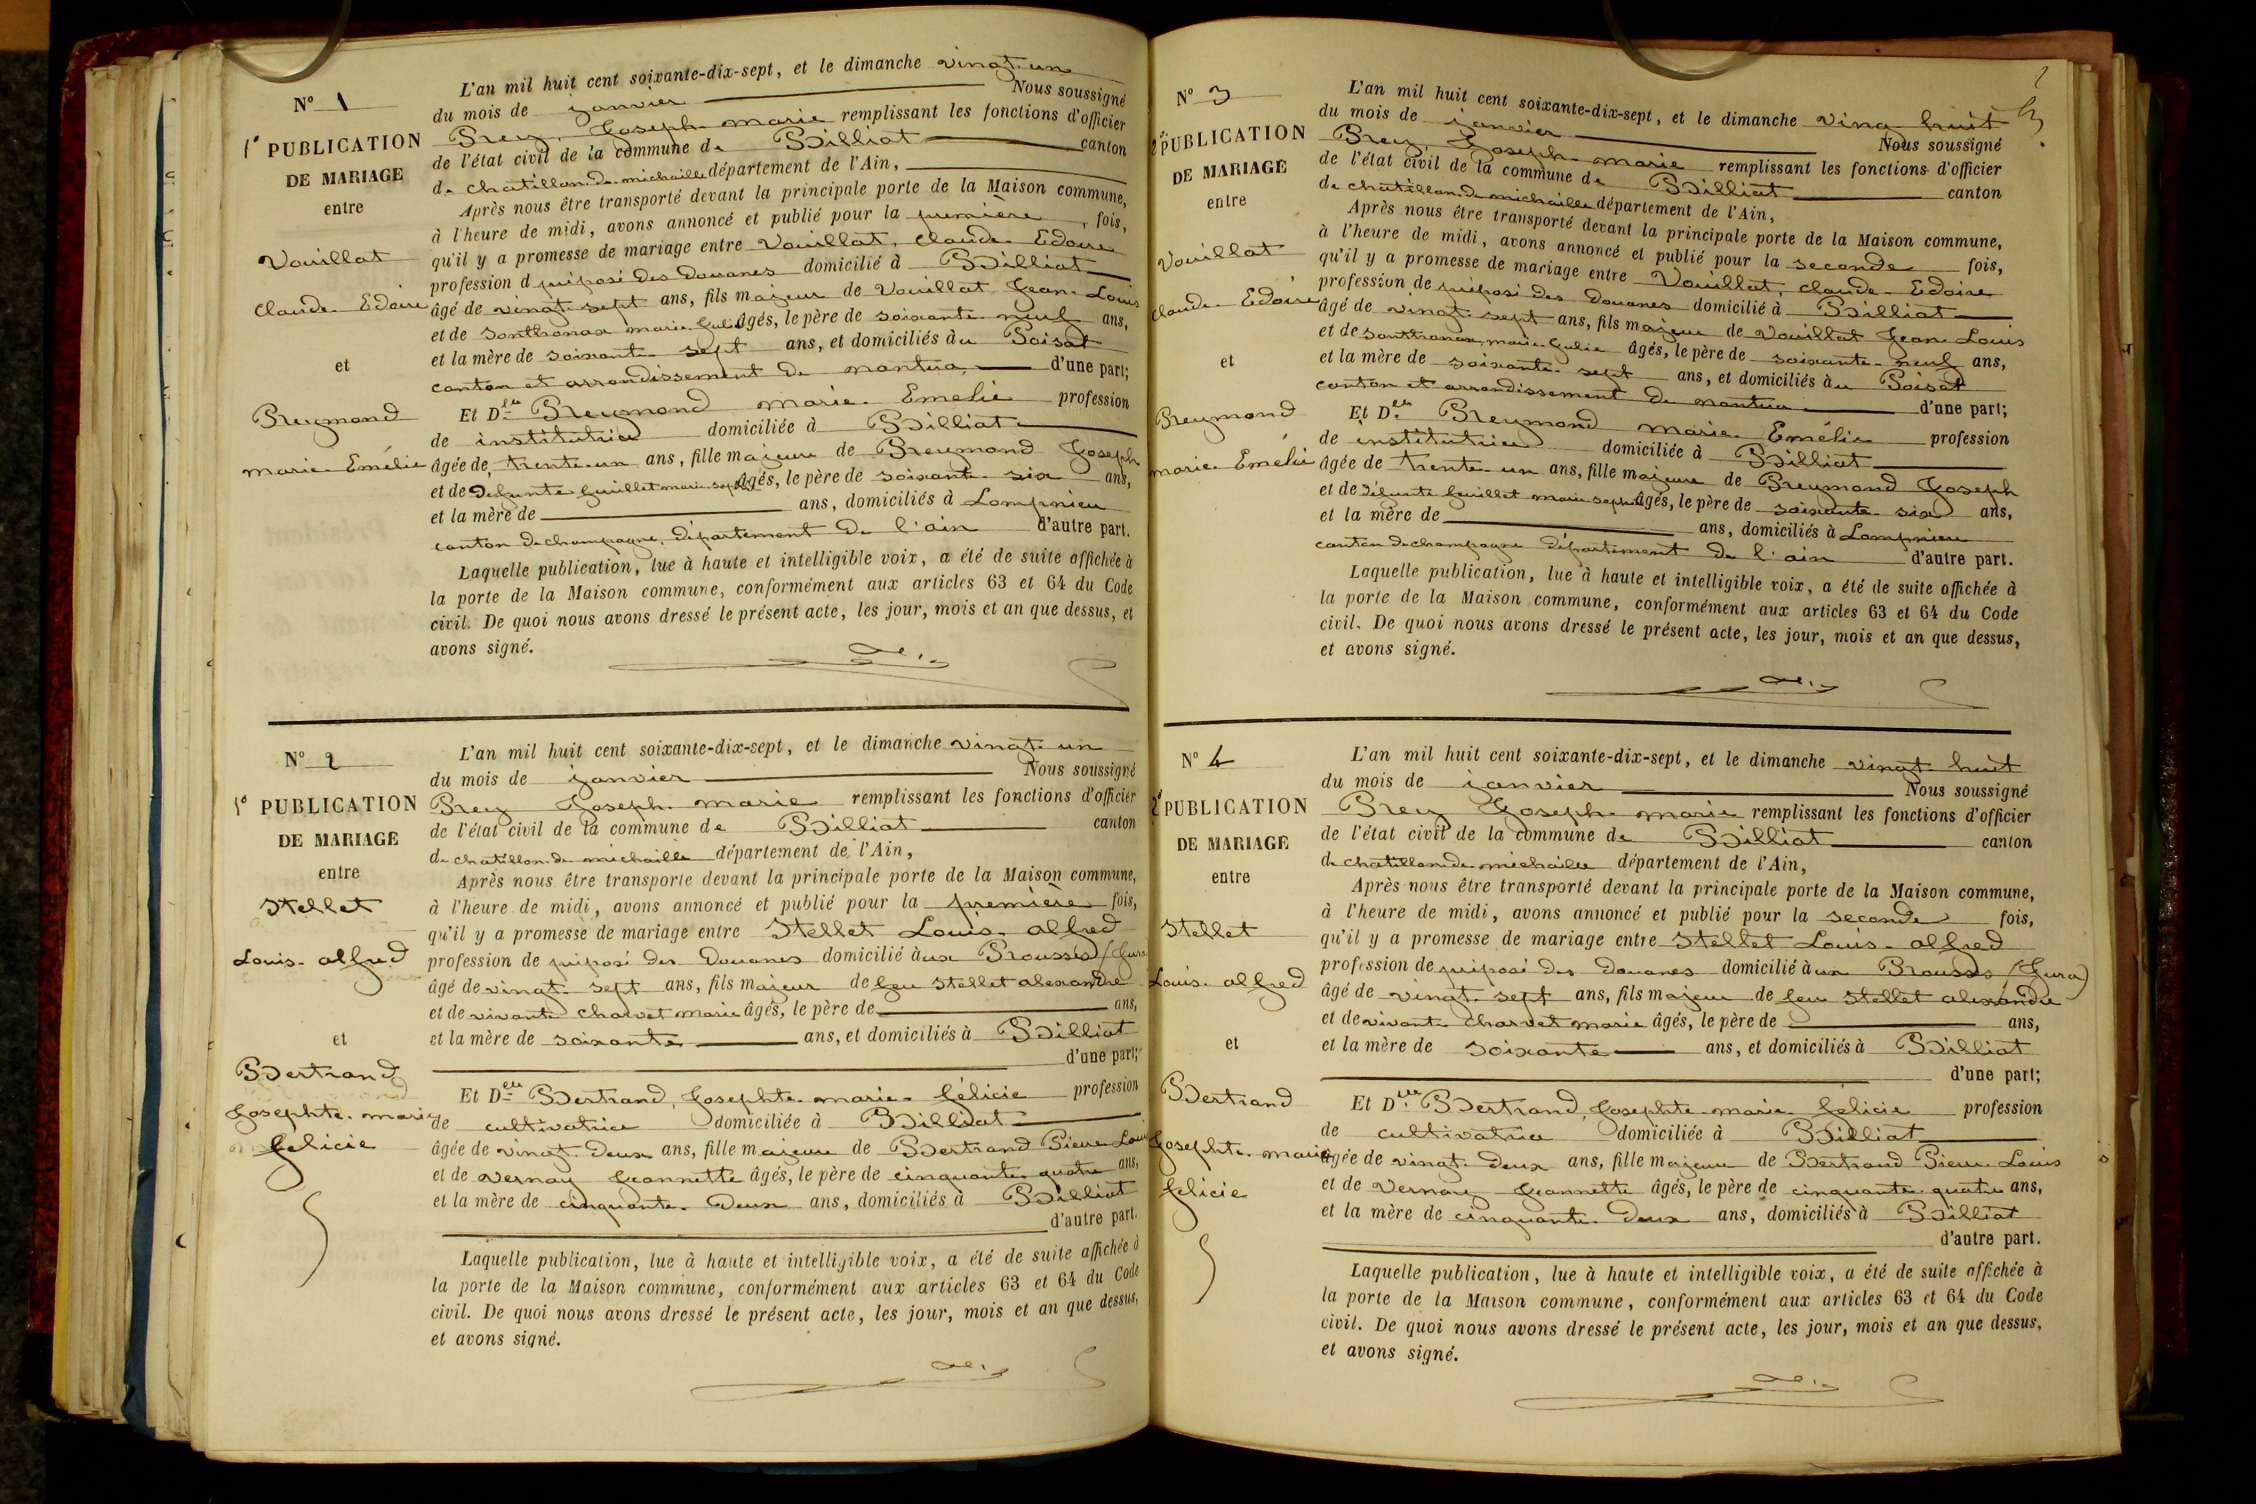 N° 1
1e PUBLICATION
DE MARIAGE
entre
Vouillat
Claude Edoire
et
Breymond
marie Emélie
L'an mil huit cent soixante-dix-sept, et le dimanche vingt un
du mois de janvier Nous soussigné
Brey, Joseph marie remplissant les fonctions d'officier
de l'état civil de la commune de Billiat canton
de chatillon de michaille département de l'Ain,
Après nous être transporté devant la principale porte de la Maison commune,
à l'heure de midi, avons annoncé et publié pour la première fois,
qu'il y a promesse de mariage entre Vouillat, claude Edoire
profession d préposé des Douanes domicilié à Billiat
âgé de vingt sept ans, fils majeur de Vouillat Jean Louis
et de Santhonax marie Julie âgés, le père de soixante neuf ans,
et la mère de soixante sept ans, et domiciliés au Poisat
canton et arrondissement de nantua d'une part;
Et Dlle Breymond marie Emelie profession
de institutrice domiciliée à Billiat
âgée de trente un ans, fille majeure de Breymond Joseph
et de défunte Guillet marie âgés, le père de soixante six ans,
et la mère de ans, domiciliés à Lompnieu
canton de champagne, département de l'ain d'autre part.
Laquelle publication, lue à haute et intelligible voix, a été de suite affichée à
la porte de la Maison commune, conformément aux articles 63 et 64 du Code
civil. De quoi nous avons dressé le présent acte, les jour, mois et an que dessus, et
avons signé.
N° 2
1e PUBLICATION
DE MARIAGE
entre
Stellet
Louis alfred
et
Bertrand
Josephte marie
felicie
L'an mil huit cent soixante-dix-sept, et le dimanche vingt un
du mois de janvier Nous soussigné
Brey Joseph marie remplissant les fonctions d'officier
de l'état civil de la commune de Billiat canton
de chatillon de michaille département de l'Ain,
Après nous être transporté devant la principale porte de la Maison commune,
à l'heure de midi, avons annoncé et publié pour la première fois,
qu'il y a promesse de mariage entre Stellet Louis alfred
profession de préposé des Douanes domicilié à aux Brousses (Jura
âgé de vingt sept ans, fils majeur de feu Stellet alexandre
et de vivante Charvet marie âgés, le père de ans,
et la mère de soixante ans, et domiciliés à Billiat
d'une part;
Et Dlle Bertrand, Josephte marie félicie profession
de cultivatrice domiciliée à Billiat
âgée de vingt Deux ans, fille majeure de Bertrand Pierre Louis
et de Vernay Jeannette âgés, le père de cinquante quatre ans,
et la mère de cinquante Deux ans, domiciliés à Billiat
d'autre part.
Laquelle publication, lue à haute et intelligible voix, a été de suite affichée à
la porte de la Maison commune, conformément aux articles 63 et 64 du Code
civil. De quoi nous avons dressé le présent acte, les jour, mois et an que dessus,
et avons signé.
2
N° 3
2e PUBLICATION
DE MARIAGE
entre
Vouillat
claude Edoire
et
Breymond
marie Emélie
L'an mil huit cent soixante-dix-sept, et le dimanche vingt huit
du mois de janvier Nous soussigné
Brey, Joseph marie remplissant les fonctions d'officier
de l'état civil de la commune de Billiat canton
de châtillon de michaille département de l'Ain,
Après nous être transporté devant la principale porte de la Maison commune,
à l'heure de midi, avons annoncé et publié pour la seconde fois,
qu'il y a promesse de mariage entre Vouillat, claude Edoire
profession de préposé des Douanes domicilié à Billiat
âgé de vingt sept ans, fils majeur de Vouillat Jean Louis
et de Santhonax marie Julie âgés, le père de soixante neuf ans,
et la mère de soixante sept ans, et domiciliés au Poisat
canton et arrondissement de nantua d'une part;
Et Dlle Breymond marie Emélie profession
de institutrice domiciliée à Billiat
âgée de trente un ans, fille majeure de Breymond Joseph
et de défunte Guillet marie âgés, le père de soixante six ans,
et la mère de ans, domiciliés à Lompnieu
canton de champagne département de l'ain d'autre part.
Laquelle publication, lue à haute et intelligible voix, a été de suite affichée à
la porte de la Maison commune, conformément aux articles 63 et 64 du Code
civil. De quoi nous avons dressé le présent acte, les jour, mois et an que dessus,
et avons signé.
N° 4
2e PUBLICATION
DE MARIAGE
entre
Stellet
Louis alfred
et
Bertrand
Josephte marie
felicie
L'an mil huit cent soixante-dix-sept, et le dimanche vingt huit
du mois de janvier Nous soussigné
Brey Joseph marie remplissant les fonctions d'officier
de l'état civil de la commune de Billiat canton
de chatillon de michaille département de l'Ain,
Après nous être transporté devant la principale porte de la Maison commune,
à l'heure de midi, avons annoncé et publié pour la seconde fois,
qu'il y a promesse de mariage entre Stellet Louis alfred
profession de préposé des Douanes domicilié à aux Brousses (Jura)
âgé de vingt sept ans, fils majeur de feu Stellet alexandre
et de vivante Charvet marie âgés, le père de ans,
et la mère de soixante ans, et domiciliés à Billiat
d'une part;
Et Dlle Bertrand, Josephte marie félicie profession
de cultivatrice domiciliée à Billiat
âgée de vingt Deux ans, fille majeure de Bertrand Pierre Louis
et de Vernay Jeannette âgés, le père de cinquante quatre ans,
et la mère de cinquante Deux ans, domiciliés à Billiat
d'autre part.
Laquelle publication, lue à haute et intelligible voix, a été de suite affichée à
la porte de la Maison commune, conformément aux articles 63 et 64 du Code
civil. De quoi nous avons dressé le présent acte, les jour, mois et an que dessus,
et avons signé.